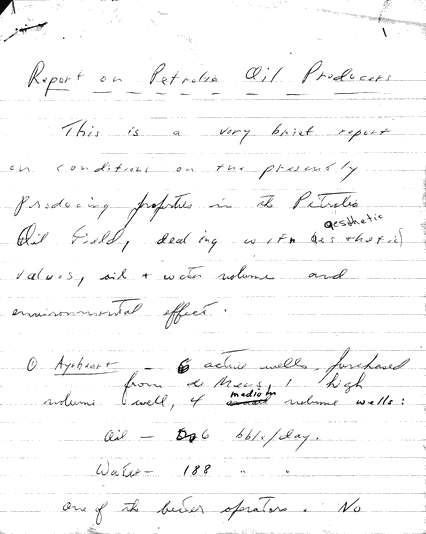 Report on Petrolia Oil Producers
This is a very brief report
on conditions on the presently
producing properties in the Petrolia
aesthetic
Oil Field, dealing with (aesthetic)
values, oil + water volume and
environmental effect.
① - 6 active wells, purchased
from 1 high
medium
volume well, 4 volume wells:
Oil - 6 bbls/day.
Water - 188 " "
one of the better operators. No